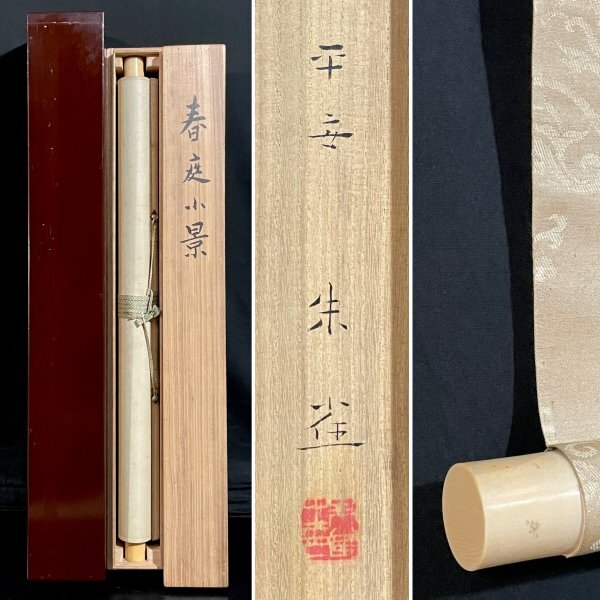 春庭小景
平安
朱雀